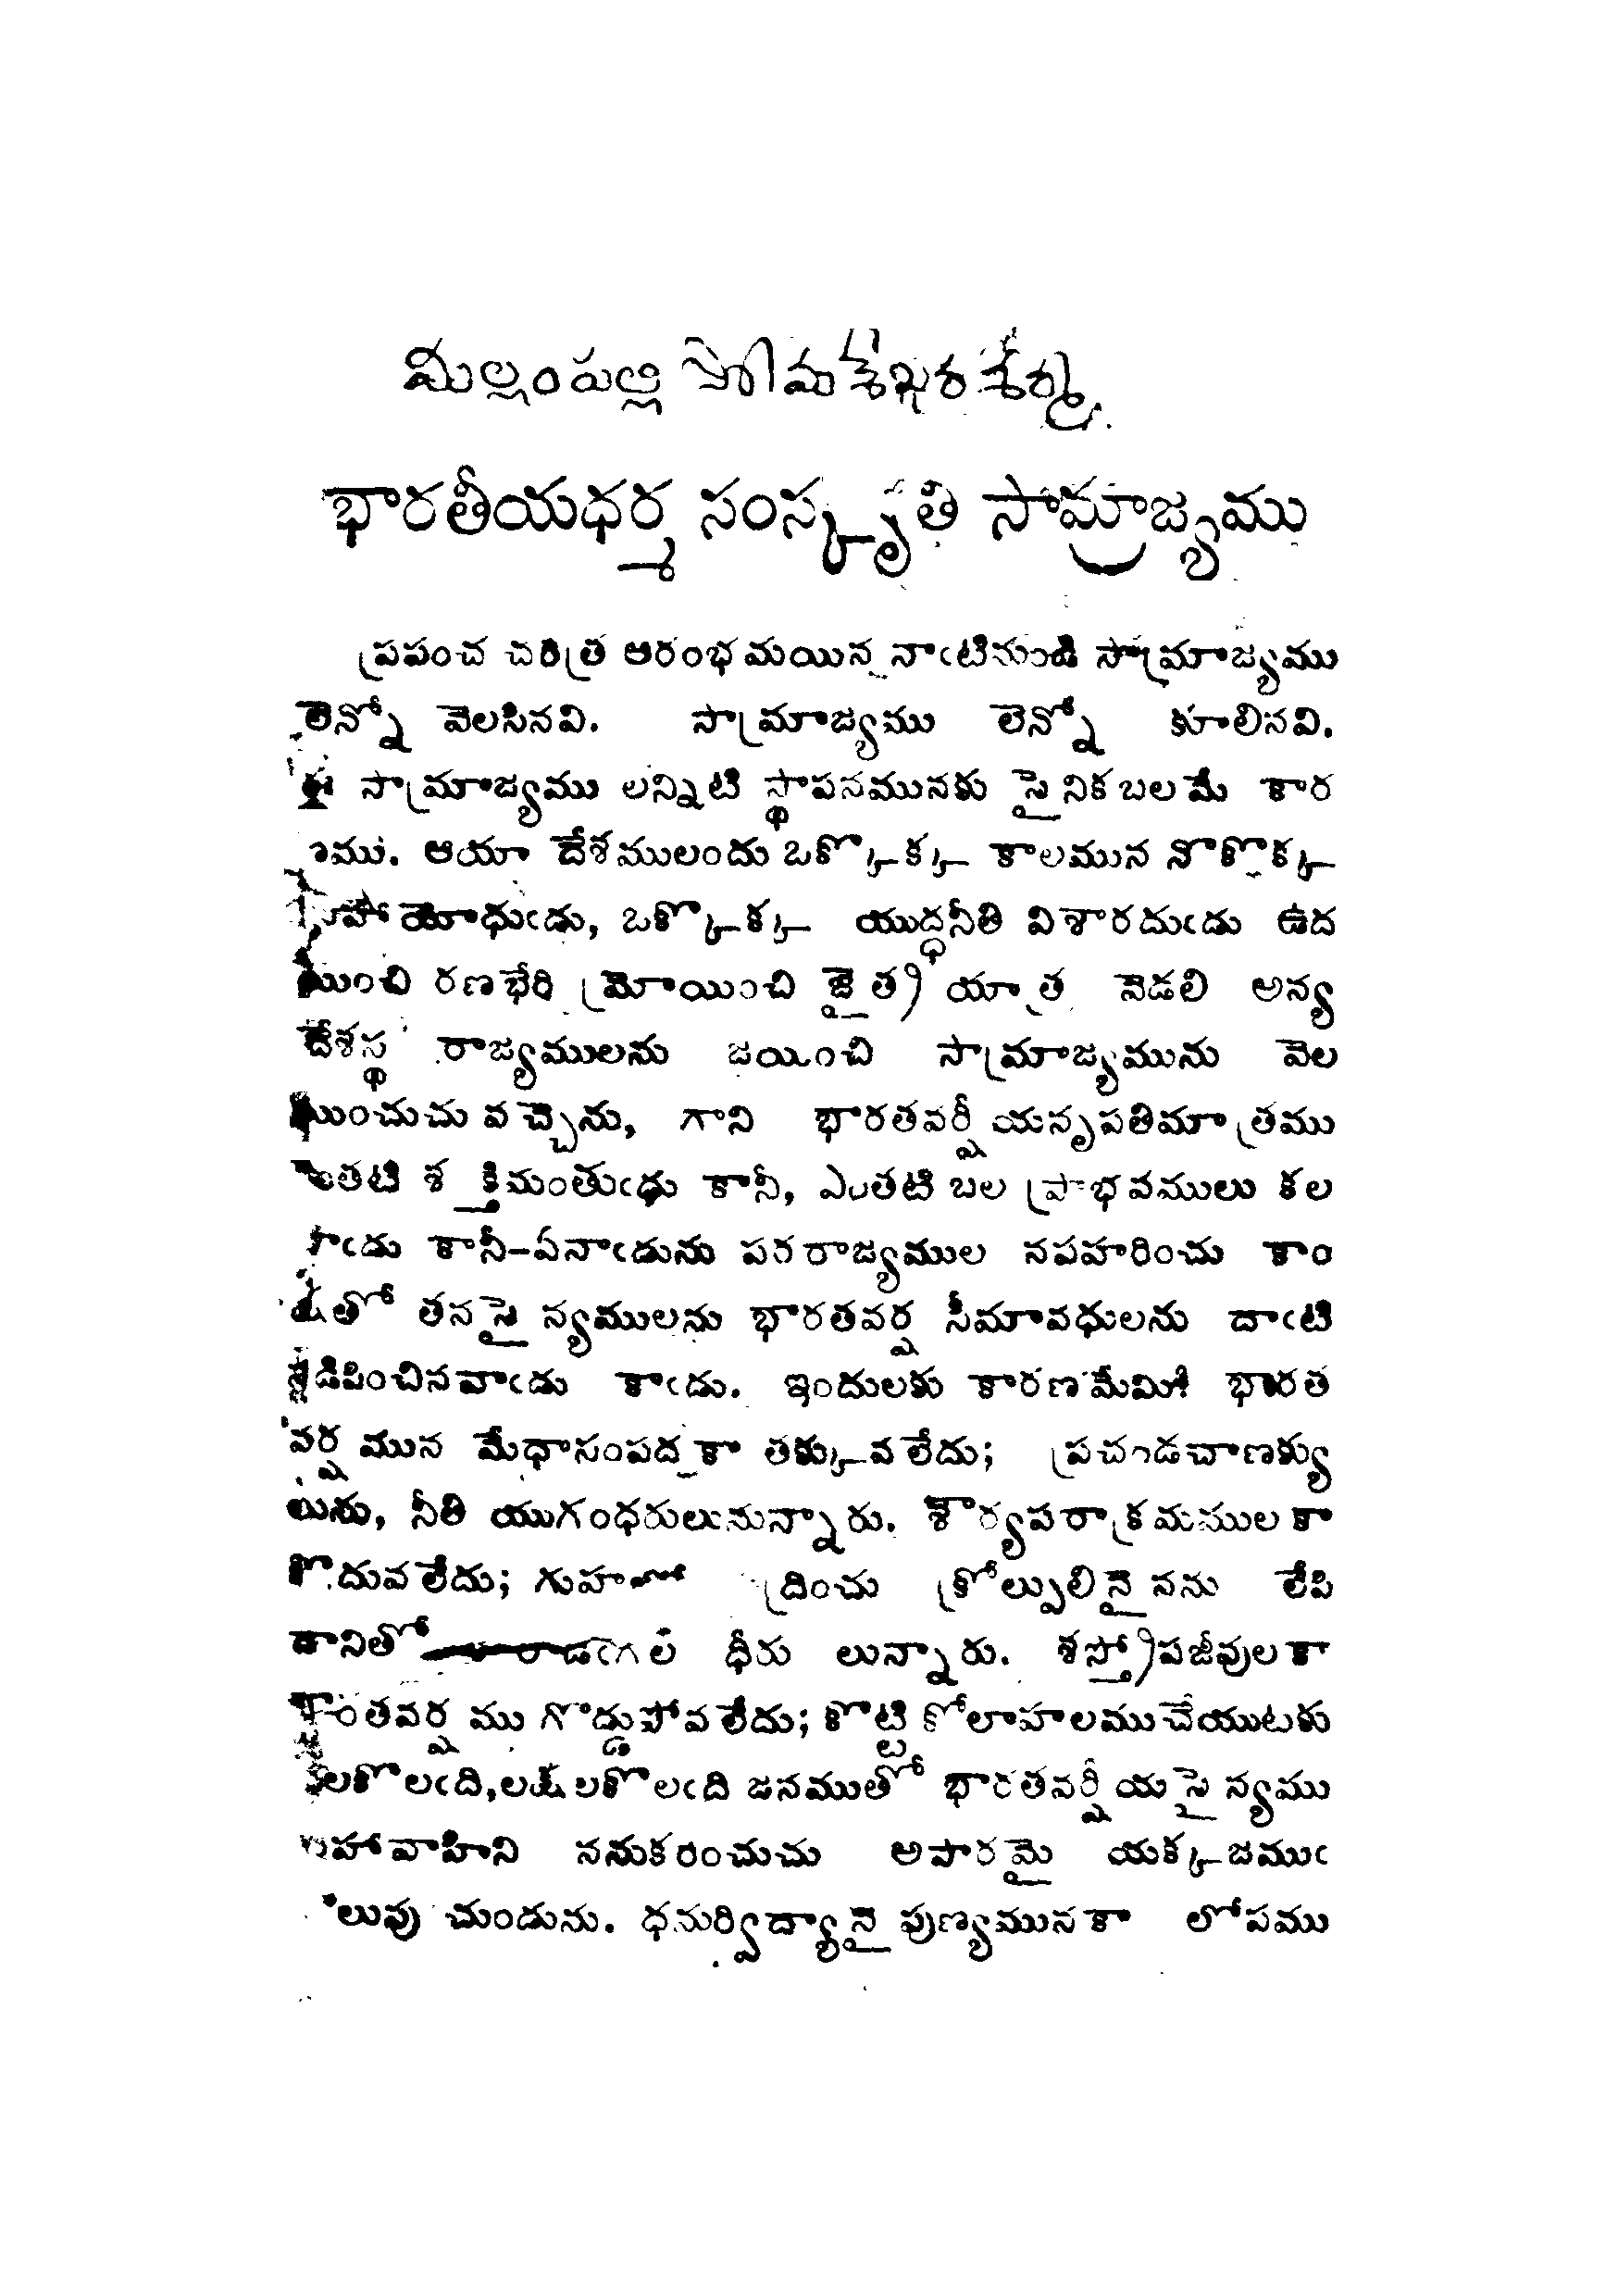 మల్లంపల్లి సోమశేఖర శర్మ
భారతీయధర్మ సంస్కృతి సామ్రాజ్యము
ప్రపంచ చరిత్ర ఆరంభమయిన నాఁటినుండి సామ్రాజ్యము
లెన్నో వెలసినవి. సామ్రాజ్యము లెన్నో కూలినవి.
ఈ సామ్రాజ్యము లన్నిటి స్థాపనమునకు సైనికబలమే కార
ణము. ఆయా దేశములందు ఒక్కొక్క కాలమున నొకొక్క
మహా యోధుఁడు, ఒక్కొక్క యుద్ధనీతి విశారదుఁడు ఉద
యించి రణభేరి మ్రోయించి జైత్ర యాత్ర వెడలి అన్య
దేశస్థ రాజ్యములను జయించి సామ్రాజ్యమును వెల
యించుచు వచ్చెను, గాని భారతవర్షీయనృపతిమాత్రము
ఎంతటి శక్తిమంతుఁడు కానీ, ఎంతటి బల ప్రాభవములు కల
వాఁడు కానీ-ఏనాఁడును పరరాజ్యముల నపహరించు కాం
క్షతో తనసైన్యములను భారతవర్ష సీమావధులను దాఁటి
నడిపించినవాఁడు కాఁడు. ఇందులకు కారణమేమి? భారత
వర్షమున మేధాసంపదకా తక్కువలేదు; ప్రచండచాణక్యు
లును, నీతి యుగంధరులునున్నారు. శౌర్యపరాక్రమములకా
కొదువలేదు; గుహలో ద్రించు క్రోల్పులినైనను లేపి
దానితో రాడఁగల ధీరు లున్నారు. శస్త్రోపజీవులకా
భారతవర్షము గొడ్డుపోవలేదు; కొట్టి కోలాహలముచేయుటకు
వేలకొలఁది,లక్షలకొలఁది జనముతో భారతవర్షీయసైన్యము
మహావాహిని ననుకరించుచు అపారమై యక్కజముఁ
గొలువు చుండును. ధనుర్విద్యానైపుణ్యమునకా లోపము